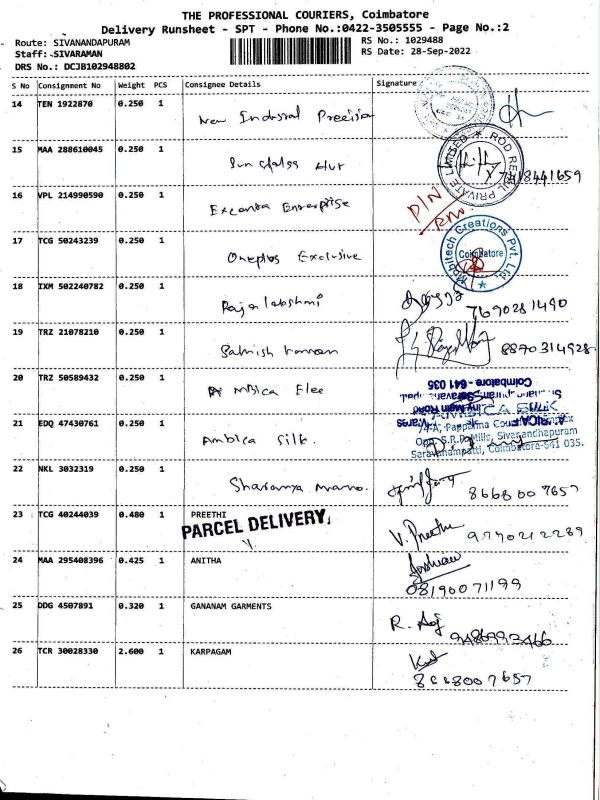 THE PROFESSIONAL COURIERS, Coimbatore
Delivery Runsheet - SPT - Phone No.:0422-3505555 - Page No.:2
Route: SIVANANDAPURAM RS No.: 1029488
Staff:-SIVARAMAN RS Date: 28-Sep-2022
DRS No.: DCJB102948802
S No Consignment No Weight PCS Consignee Details Signature
14 TEN 1922870 0.250 1 New Indusral Precision
15 MAA 288610045 0.250 1 Sun glass Hur
ROD RETAIL PRIVATE LIMITED
7418441659
16 VPL 214990590 0.250 1 Excanta Enterprise
17 TCG 50243239 0.250 1 Oneplus Exclusive
Mobitech Creations Pvt. Ltd.
Coimbatore
18 IXM 502240782 0.250 1 Rajalakshmi
7690281490
19 TRZ 21078210 0.250 1 Sathish
8870314928
20 TRZ 50589432 0.250 1 Ambica Elee
Coimbatore - 641 035
21 EDQ 47430761 0.250 1 Ambica Silk.
Opp. S.R.P. Mills, Sivanandhapuram
Saravanampatti, Coimbatore-641 035.
22 NKL 3032319 0.250 1 Sharanya
8668007657
23 TCG 40244039 0.480 1 PREETHI V. Preethi
PARCEL DELIVERY
24 MAA 295408396 0.425 1 ANITHA
08190071199
25 DDG 4507891 0.320 1 GANANAM GARMENTS R.
9486993466
26 TCR 30028330 2.600 1 KARPAGAM
8668007657